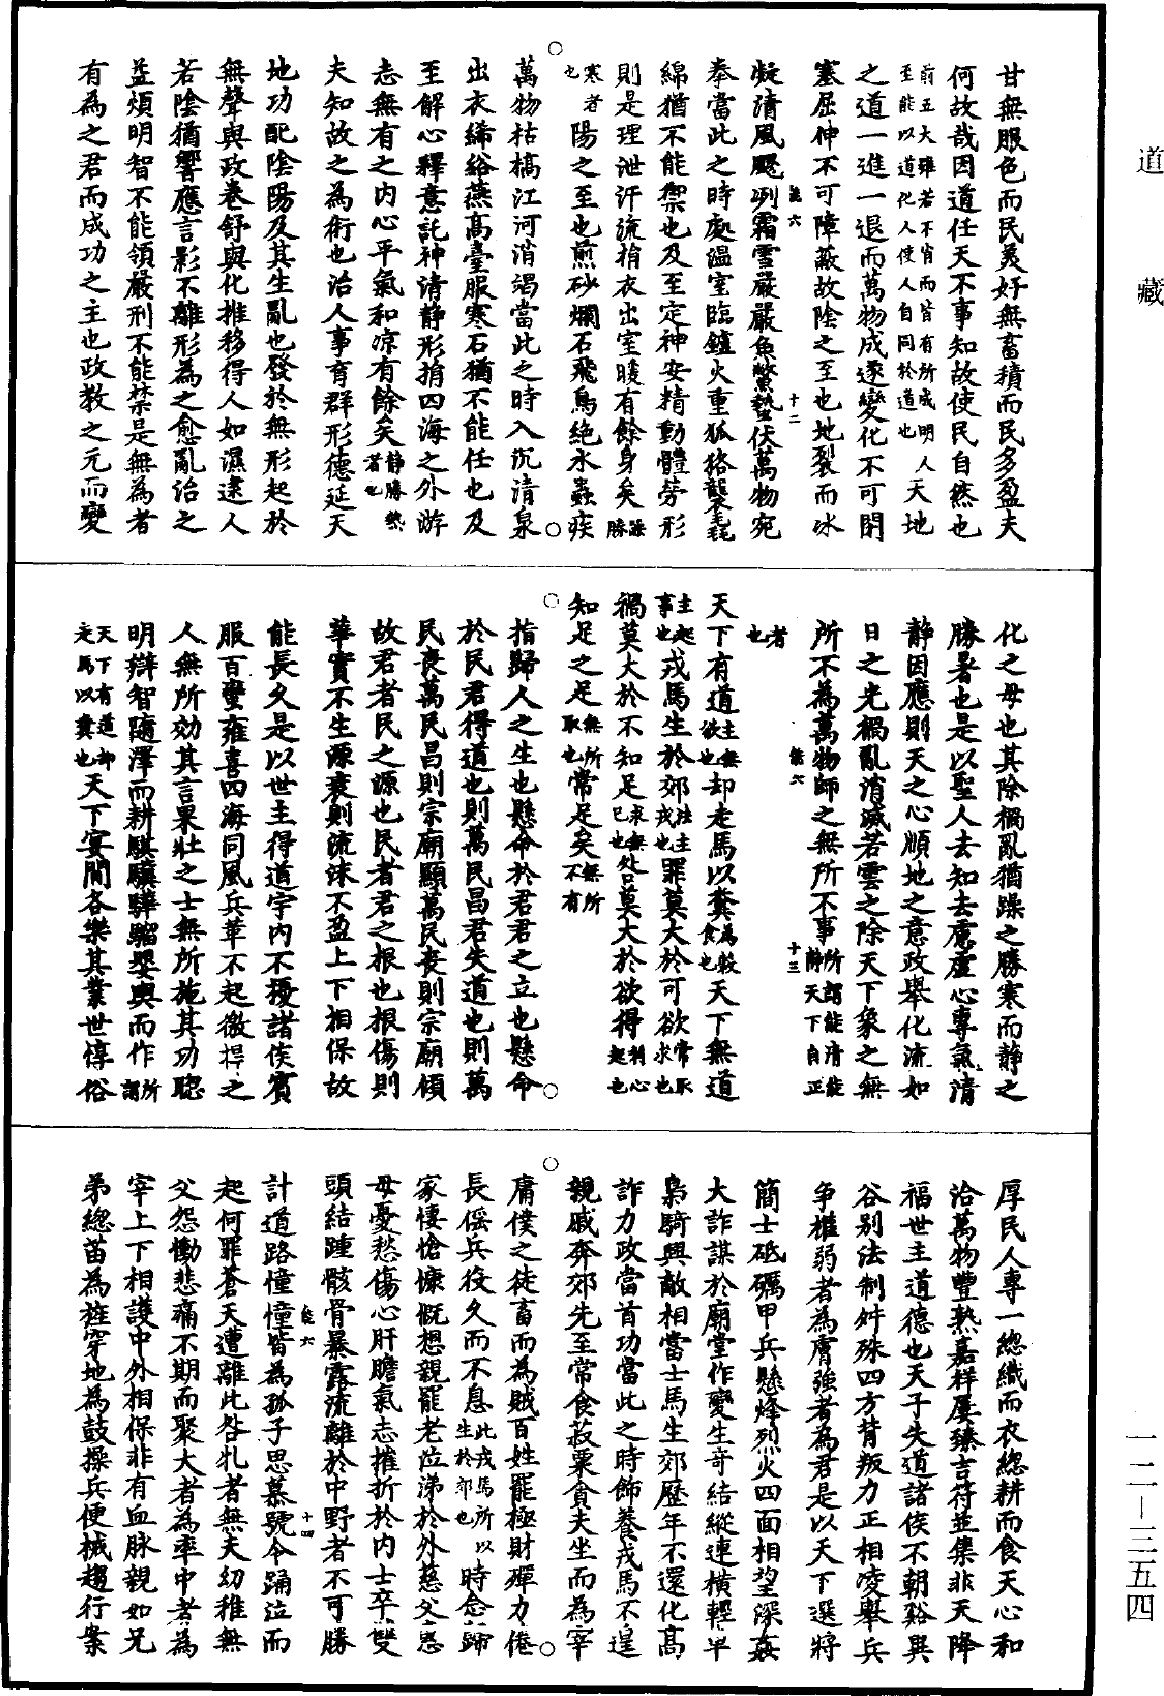 道藏
甘無服色而民美好無畜積而民多盈夫
何故哉因道任天不事知故使民自然也
前五大雖若不肖而皆有所成明人至能以道化人使人自同於道也天地
之道一進一退而萬物成遂變化不可閉
塞屈伸不可障蔽故陰之至也地裂而冰
凝清風飂冽霜雪嚴嚴魚鱉蟄伏萬物宛
拳當此之時處溫室臨鑪火重狐狢襲毳
綿猶不能禦也及至定神安精動體勞形
則是理泄汗流捐衣出室暖有餘身矣躁勝
寒者也陽之至也煎砂爛石飛鳥絕水蟲疾
萬物枯槁江河消竭當此之時入沉清泉
出衣絺綌燕高臺服寒石猶不能任也及
至解心釋意託神清靜形捐四海之外游
志無有之內心平氣和凉有餘矣靜勝熱者也
夫知故之為術也治人事育群形德延天
地功配陰陽及其生亂也發於無形起於
無聲與政卷舒與化推移得人如濕逮人
若陰猶響應言影不離形為之愈亂治之
益煩明智不能領嚴刑不能禁是無為者
有為之君而成功之主也政教之元而變
化之母也其除禍亂猶躁之勝寒而靜之
勝暑也是以聖人去知去慮虛心專氣清
靜因應則天之心順地之意政舉化流如
日之光禍亂消滅若雲之除天下象之無
所不為萬物師之無所不事所謂能清能靜天下自正
者也
天下有道主無欲也却走馬以糞為穀食也天下無道
主起事也戎馬生於郊注主戎也罪莫大於可欲常取求也
禍莫大於不知足求無已也咎莫大於欲得利心起也
知足之足無所取也常足矣無所不有
指歸人之生也懸命於君君之立也懸命
於民君得道也則萬民昌君失道也則萬
民喪萬民昌則宗廟顯萬民喪則宗廟傾
故君者民之源也民者君之根也根傷則
華實不生源衰則流沫不盈上下相保故
能長久是以世主得道宇內不擾諸侯賓
服百蠻雍喜四海同風兵革不起徼捍之
人無所効其言果壯之士無所施其功聰
明辯智隨澤而耕騏驥驊騮嬰輿而作所謂
天下有道却走馬以糞也天下宴閒各樂其業世惇俗
厚民人專一總織而衣總耕而食天心和
洽萬物豐熟嘉祥屢臻吉符並集非天降
福世主道德也天子失道諸侯不朝谿異
谷別法制舛殊四方背叛力正相凌舉兵
爭權弱者為虜強者為君是以天下選將
簡士砥礪甲兵懸烽烈火四面相望深姦
大詐謀於廟堂作變生奇結縱連橫輕卒
梟騎興敵相當士馬生郊歷年不還化高
詐力政當首功當此之時飾養戎馬不遑
親戚奔郊先至常食菽粟貪夫坐而為宰
庸僕之徒畜而為賊百姓罷極財殫力倦
長徭兵役久而不息此戎馬所以生於郊也時念歸
家悽愴慷慨想親罷老泣涕於外慈父思
母憂愁傷心肝膽氣志摧折於內士卒雙
頭結踵骸骨暴露流離於中野者不可勝
計道路憧憧皆為孤子思慕號令踊泣而
起何罪蒼天遭離此咎札者無夫幼稚無
父怨慟悲痛不期而聚大者為率中者為
宰上下相護中外相保非有血脉親如兄
弟總苗為旌穿地為鼓操兵便械趨行案
能六 十二
能六 十三
能六 十四
一二—三五四